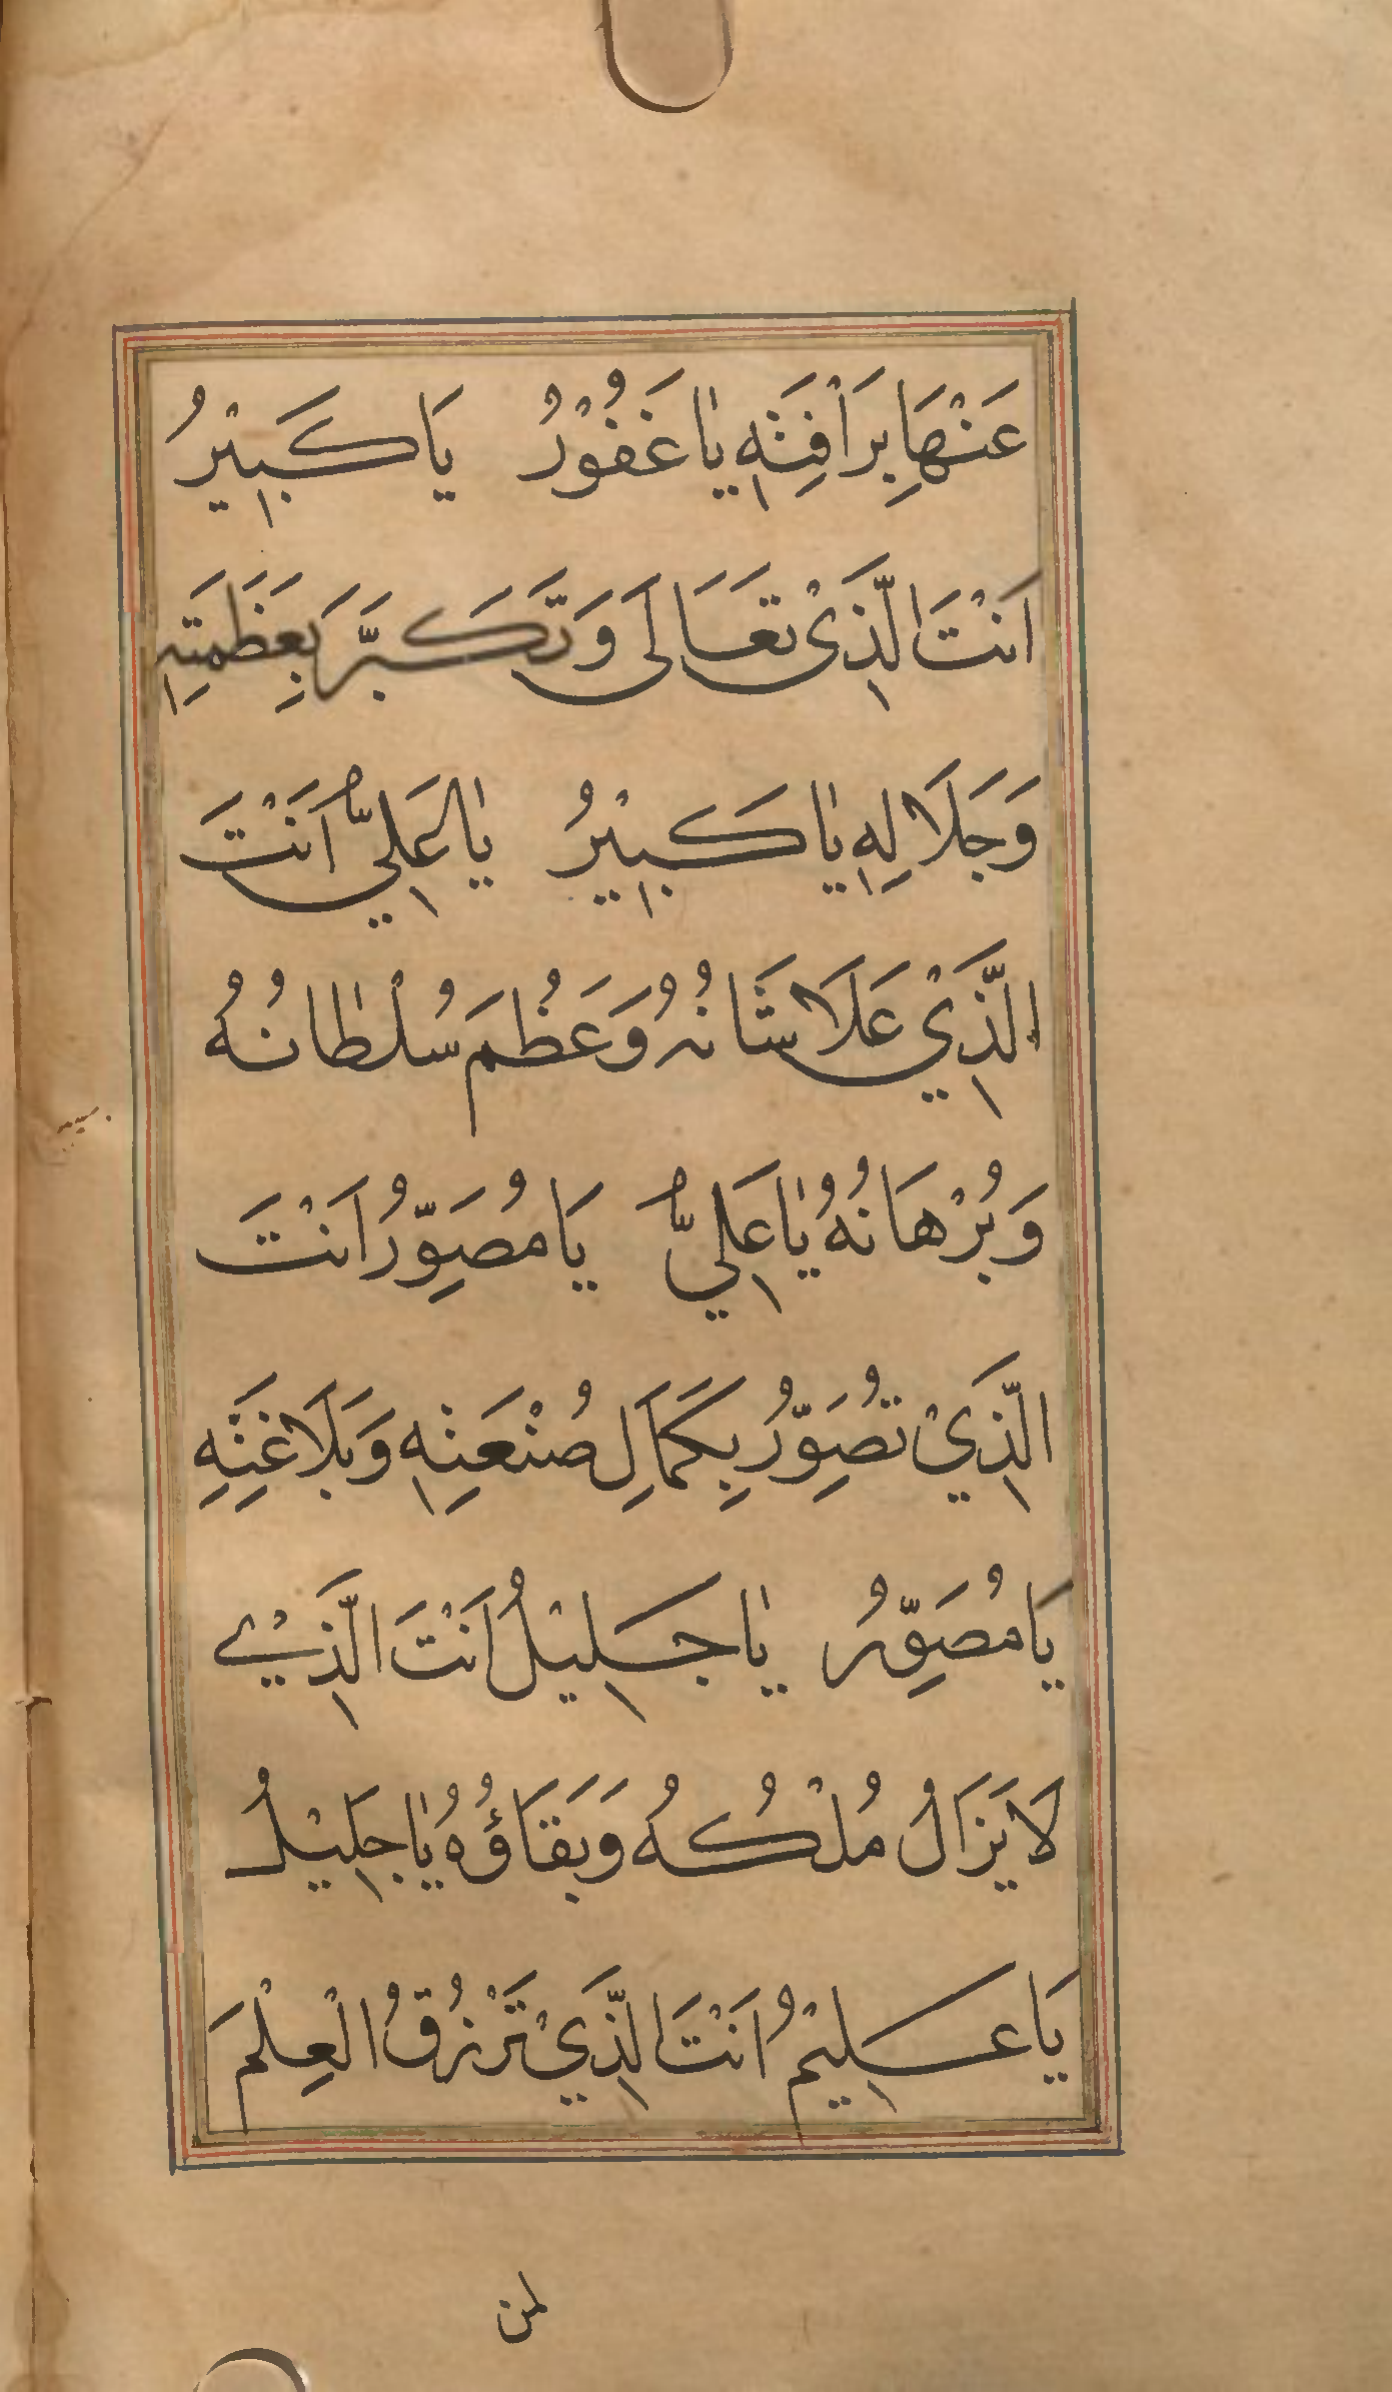 عَنْهَا بِرَاْفَتِهٖ يٰا غَفُوْرُ يَا كَبِيْرُ
اَنْتَ الَّذِيْ تَعَالَى وَتَكَبَّرَ بِعَظَمَتِهٖ
وَجَلَالِهٖ يٰا كَبِيْرُ يٰا لعَلِيُّ اَنْتَ
الَّذِيْ عَلَا شَانُهُ وَعَظُمَ سُلْطَانُهُ
وَبُرْهَانُهُ يٰا عَلِيُّ يَا مُصَوِّرُ اَنْتَ
الَّذِيْ تُصَوِّرُ بِكَمَالِ صُنْعَتِهٖ وَبَلَاغَتِهِ
يَا مُصَوِّرُ يٰا جَلِيْلُ اَنْتَ الَّذِيْ
لَا يَزَالُ مُلْكُهُ وَبَقَاؤُهُ يٰا جَلِيْلُ
يَا عَلِيْمُ اَنْتَ الَّذِيْ تَرْزُقُ الْعِلْمَ
لمن